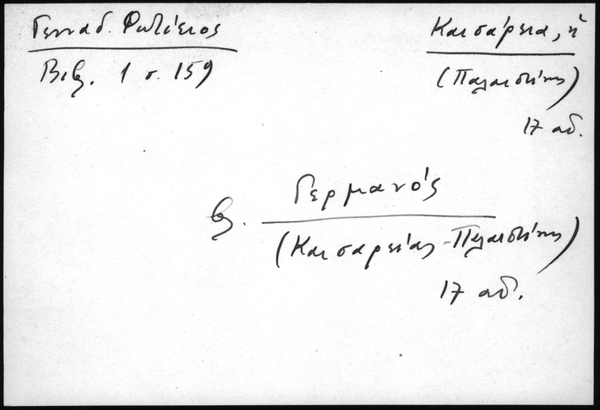 Γενναδ. Φωτίειος
Βιβ. 1 σ. 159
Καισάρεια, ἡ
(Παλαιστίνης)
17 αδ.
βλ. Γερμανός
(Καισαρείας-Παλαιστίνης)
17 αδ.